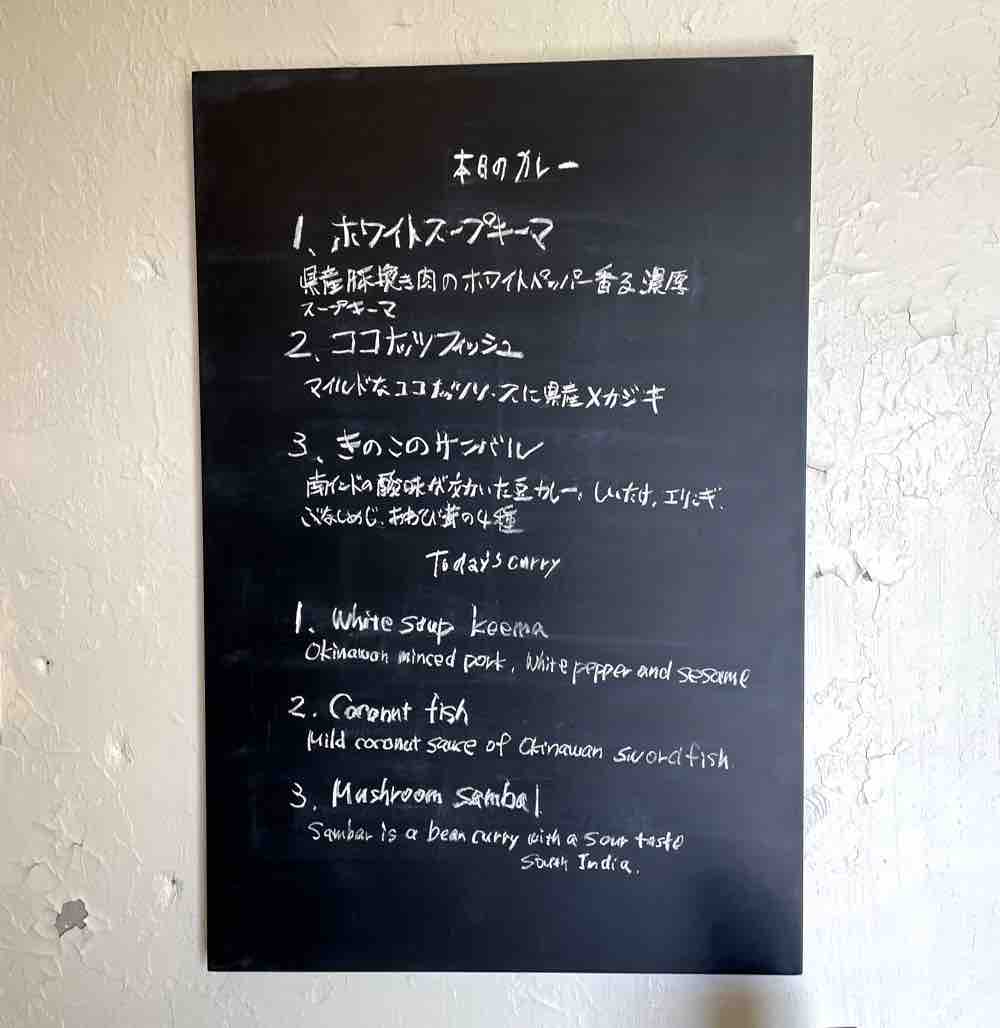 本日のカレー
1、ホワイトスープキーマ
県産豚挽き肉のホワイトペッパー香る濃厚
スープキーマ
2、ココナッツフィッシュ
マイルドなココナッツソースに県産メカジキ
3、きのこのサンバル
南インドの酸味が効いた豆カレー、しいたけ、エリンギ、
ぶなしめじ、あわび茸の4種
Today's curry
1、White soup keema
Okinawan minced pork, White pepper and sesame
2. Coconut fish
Mild coconut sauce of Okinawan swordfish
3. Mushroom sambal
Sambar is a bean curry with a sour taste
South India.